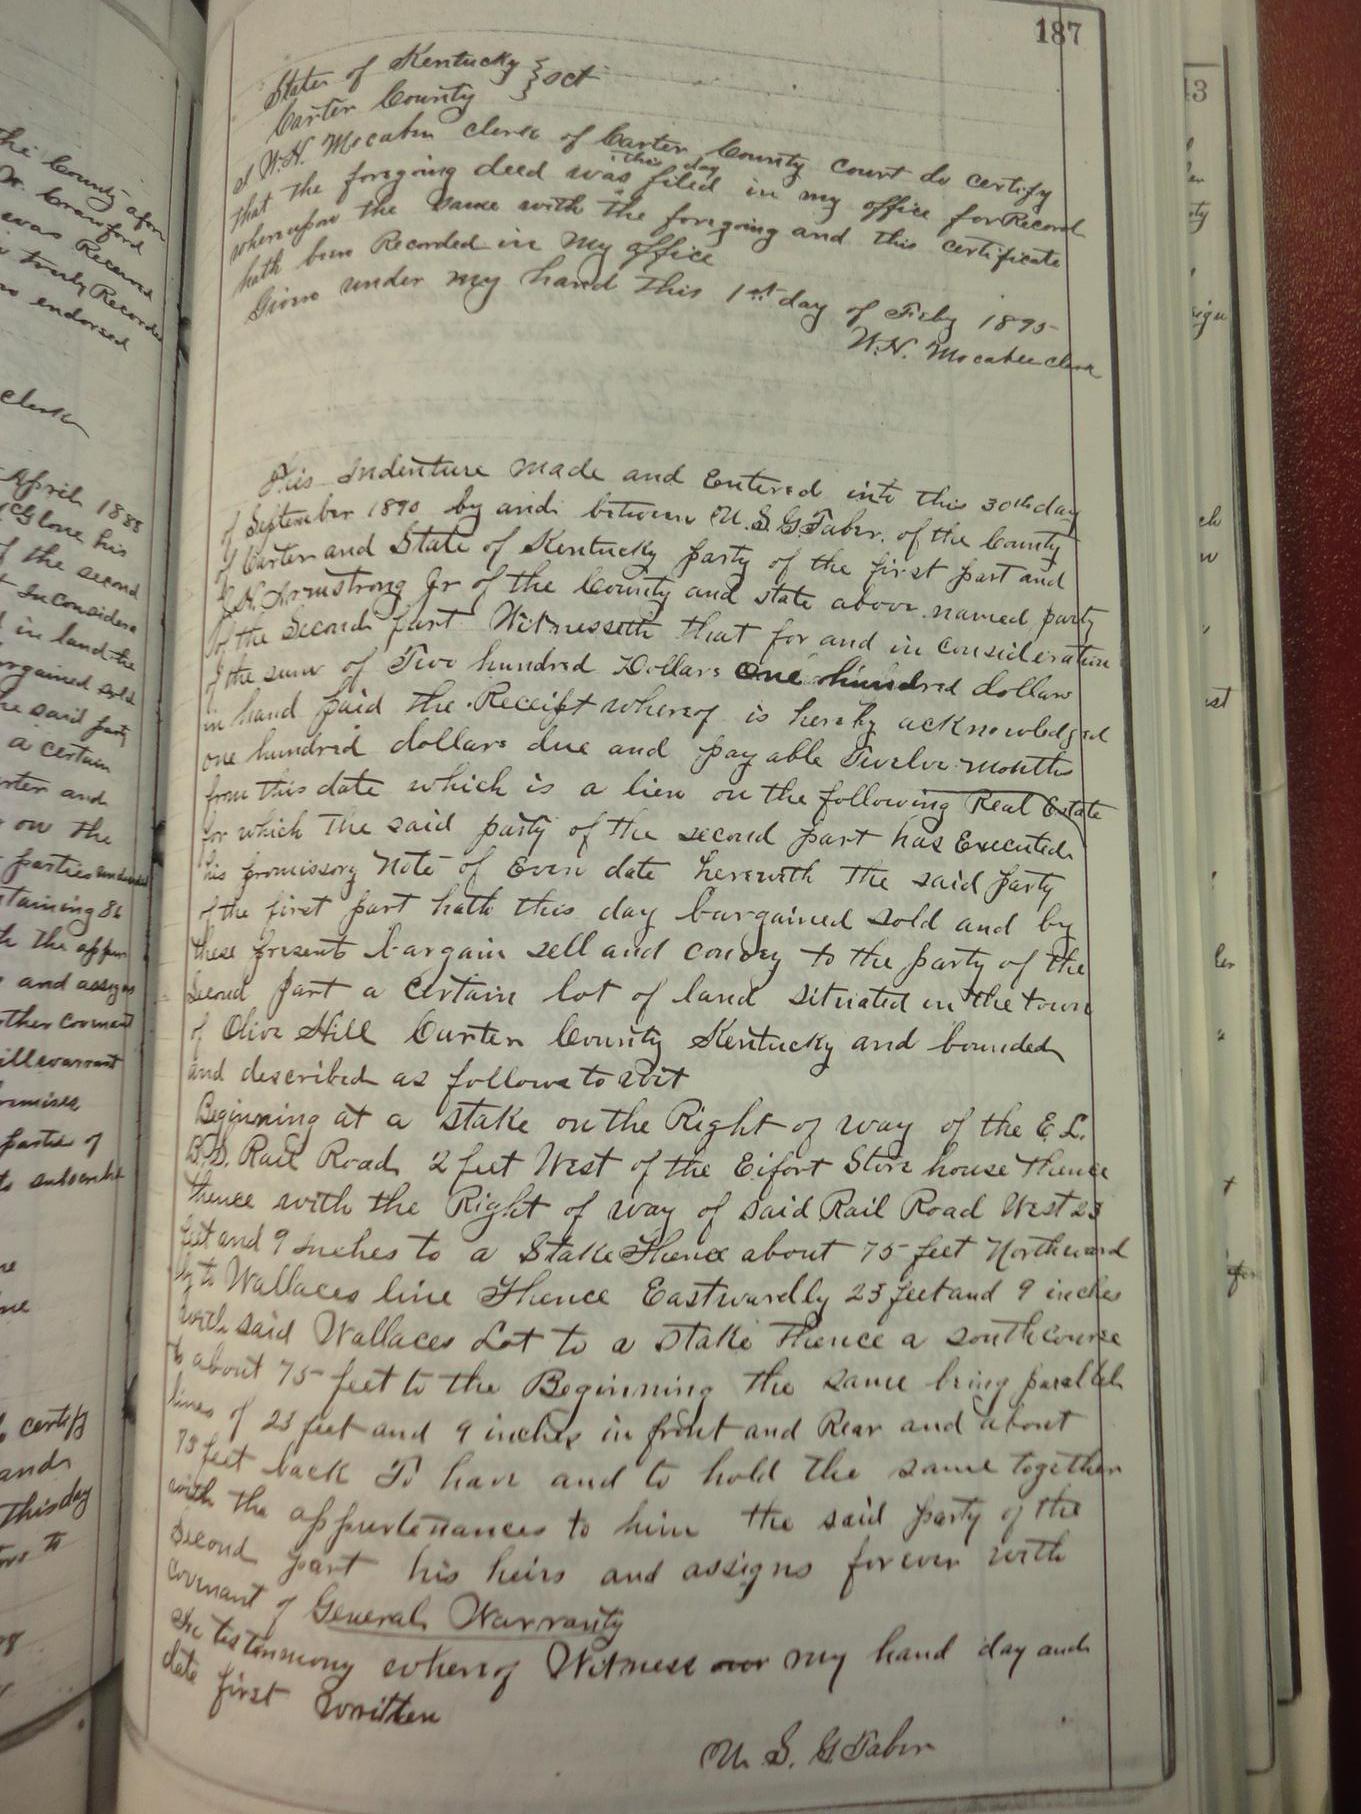 187
State of Kentucky } sct
Carter County
I W.H. Mocabee clerk of Carter County court do certify
that the foregoing deed was this day filed in my office for Record
whereupon the same with the foregoing and this certificate
hath been Recorded in my office
Given under my hand this 1st day of Feby 1895
W.H. Mocabee clerk
This Indenture made and Entered into this 30th day
of September 1890 by and between U.S.G Taber. of the County
of Carter and State of Kentucky party of the first part and
Armstrong Jr of the County and state above named party
of the Second part Witnesseth that for and in consideration
of the sum of Two hundred Dollars One hundred dollars
in hand paid the Receipt whereof is hereby acknowledged
one hundred dollars due and payable Twelve months
from this date which is a lien on the following Real Estate
for which the said party of the second part has Executed
his promissory Note of Even date herewith the said party
of the first part hath this day bargained sold and by
these presents bargain sell and convey to the party of the
Second part a certain lot of land situated in the town
of Olive Hill Carter County Kentucky and bounded
and described as follows to wit
Beginning at a stake on the Right of way of the E. L.
B.S. Rail Road 2 feet West of the Eifort Store house Thence
thence with the Right of way of said Rail Road West 23
feet and 9 Inches to a Stake Thence about 75 feet Northward
ly to Wallaces line Thence Eastwardly 23 feet and 9 inches
with said Wallaces Lot to a stake Thence a south course
to about 75 feet to the Beginning the same being parallel
lines of 23 feet and 9 inches in front and Rear and about
75 feet back To have and to hold the same together
with the appurtenances to him the said party of the
Second part his heirs and assigns forever with
covenant of General Warranty
In testimony whereof Witness my hand day and
date first written
U. S. G Taber
the County
Crawford
was Received
truly Recorded
endorsed
clerk
April 1888
his
of the second
Inconsidera
in land the
bargained sold
the said party
a certain
and
on the
parties
containing 86
the appur
and assigns
other covenant
will warrant
premises
parties of
to subscribe
certify
and
This day
to
43